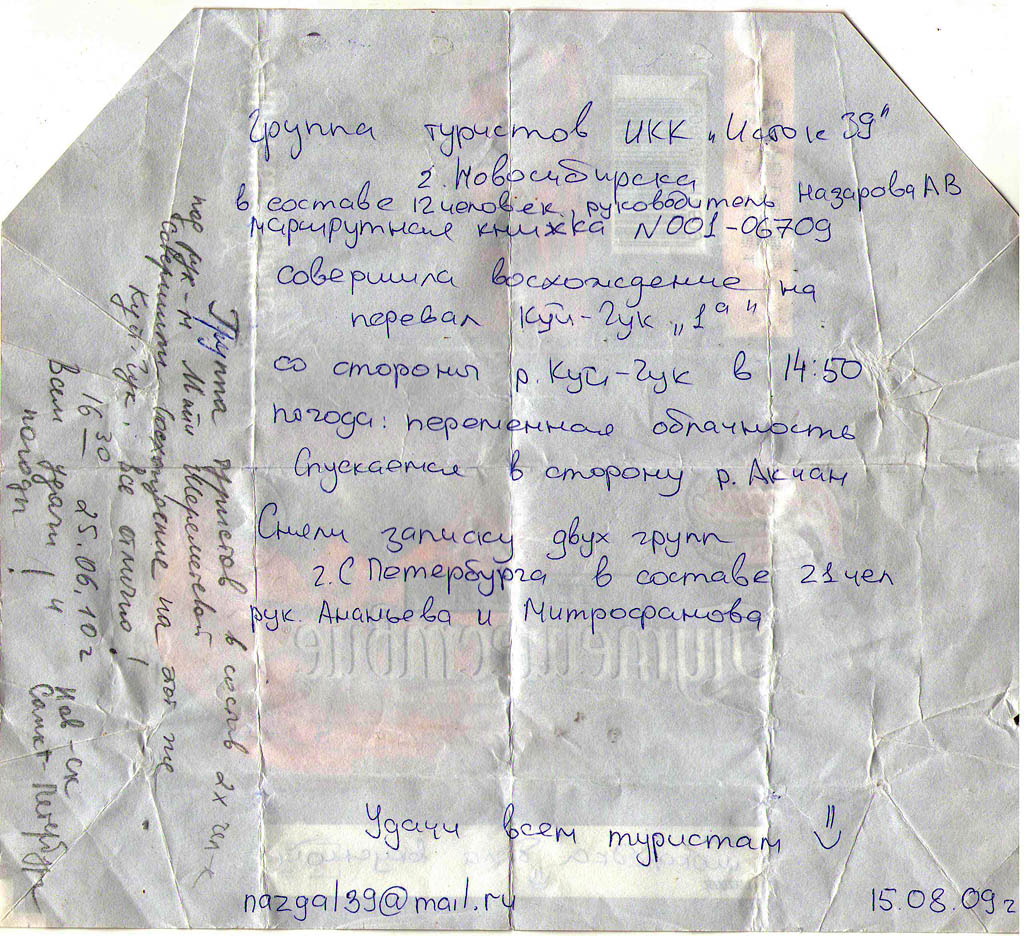 Группа туристов ИКК „Исток 39"
г. Новосибирска
в составе 12 человек, руководитель Назарова АВ
маршрутная книжка N001-06709
совершила восхождение на
перевал Куй-Гук „1а"
со стороны р. Куй-Гук в 14:50
погода: переменная облачность
Спускаемся в сторону р. Акчан
Сняли записку двух групп
г. С Петербурга в составе 21 чел
рук. Ананьева и Митрофанова
Удачи всем туристам
nazgal39@mail.ru
15.08.09 г
Группа туристов в состав 2х чел-к
под рук-м Майи Шереметевой
совершили восхождение на этот же
Куй-Гук. Все отлично!
16 30 25.06.10 г
Всем удачи! и
погоды!
Нов-ск
Санкт-Петербург
путешествие